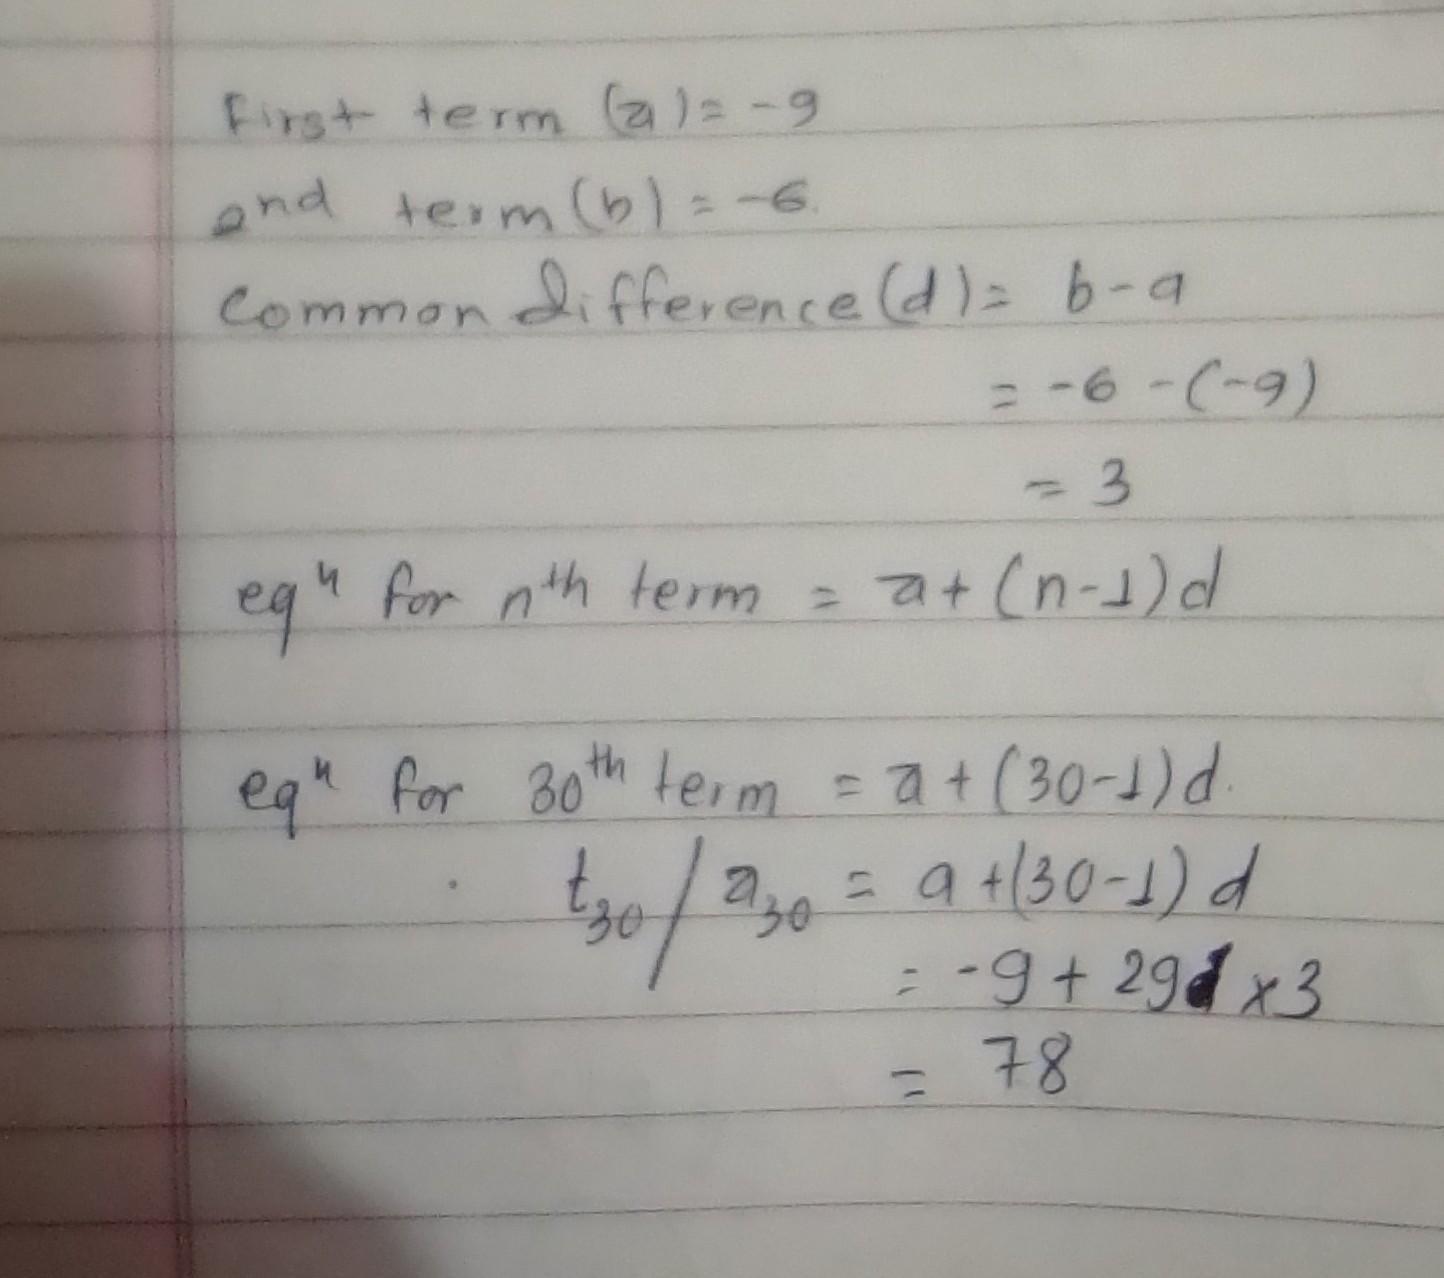 First term (a) = -9
2nd term (b) = -6.
Common difference (d) = b-a
= -6 - (-9)
= 3
eqⁿ for nᵗʰ term = a + (n-1)d
eqⁿ for 30ᵗʰ term = a + (30-1)d.
t₃₀ / a₃₀ = a + (30-1) d
= -9 + 29 × 3
= 78